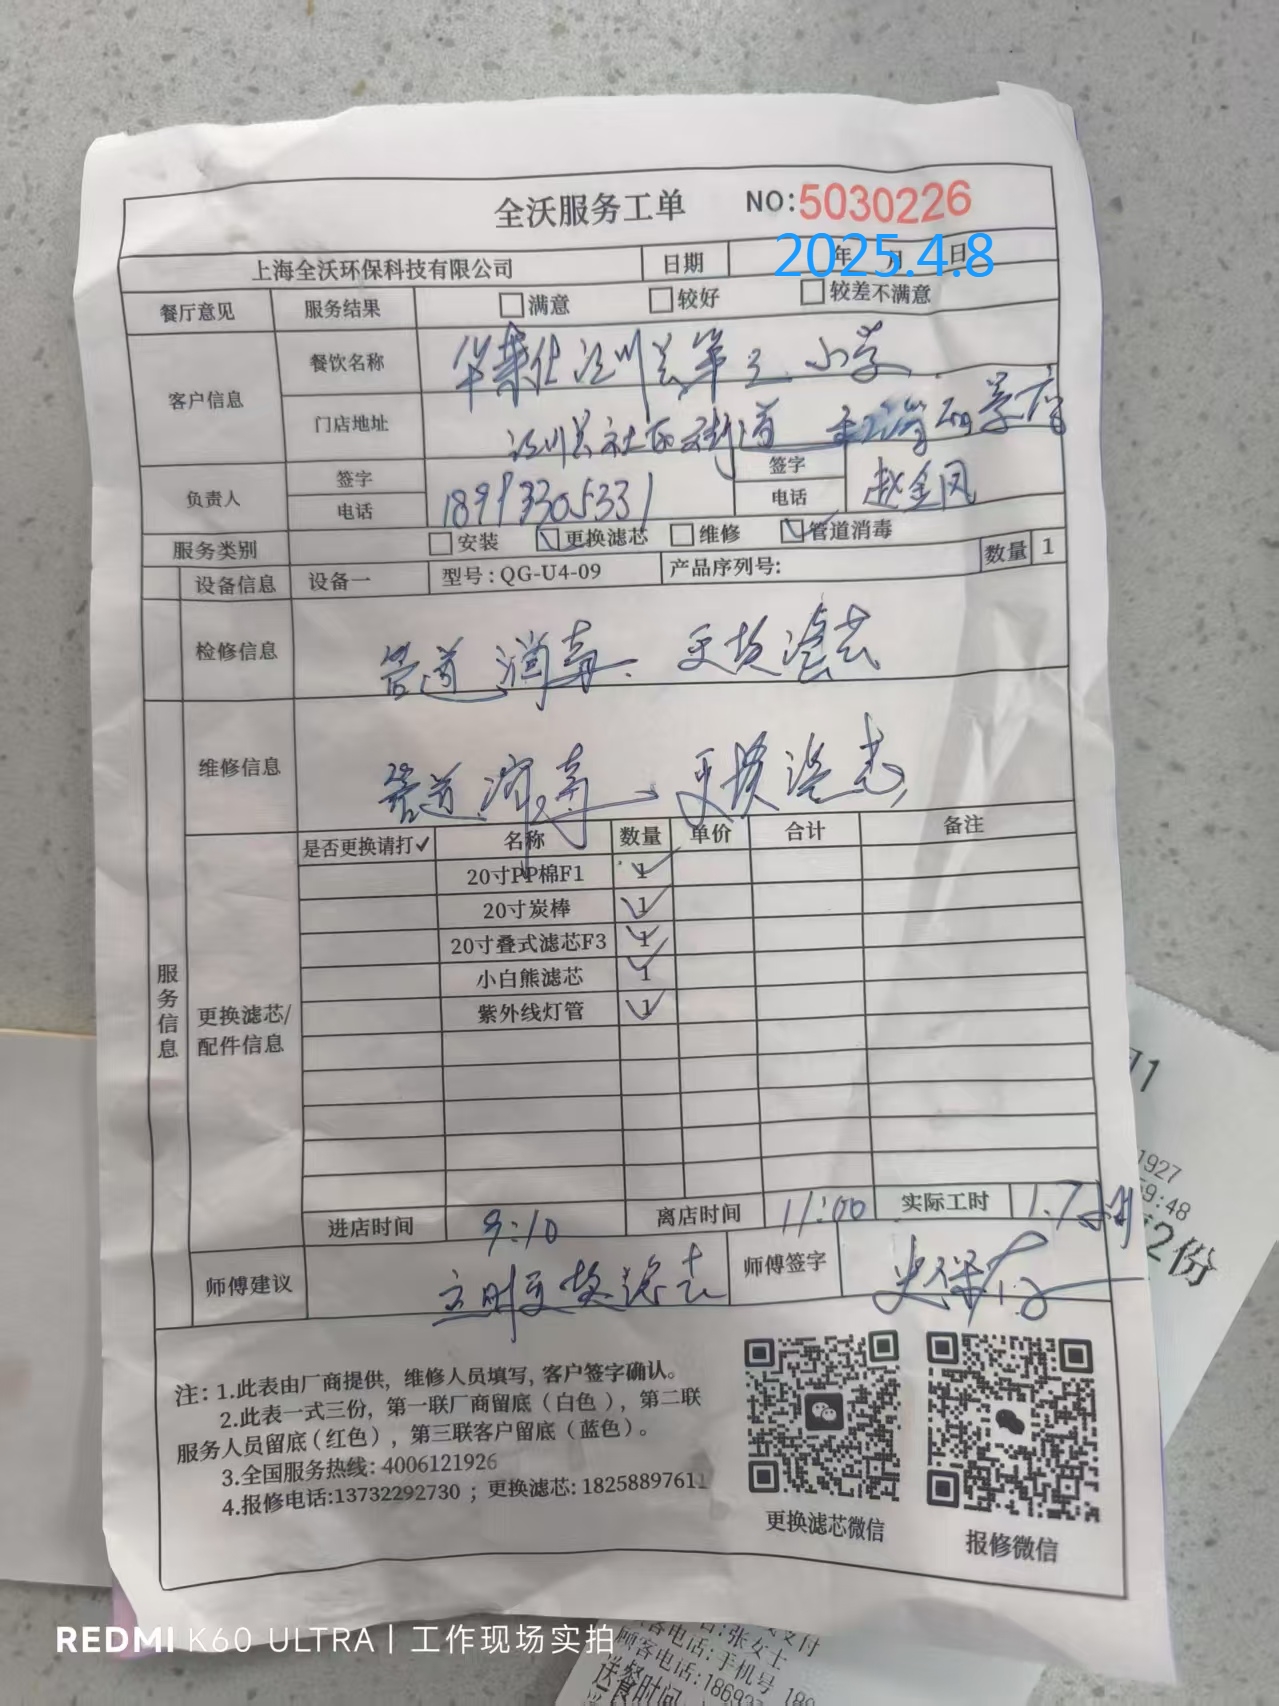 全沃服务工单 NO:5030226
上海全沃环保科技有限公司 日期 年 月 日
2025.4.8
餐厅意见 服务结果 满意 较好 较差不满意
客户信息 餐饮名称 华莱仕泾川县第三小学
门店地址 泾川县社区街道
负责人 签字 签字 赵金凤
电话 18993305331 电话
服务类别 安装 更换滤芯 维修 管道消毒
设备信息 设备一 型号:QG-U4-09 产品序列号: 数量 1
检修信息 管道消毒. 更换滤芯
服务信息
维修信息 管道消毒、更换滤芯
更换滤芯/配件信息
是否更换请打✓ 名称 数量 单价 合计 备注
20寸PP棉F1 1
20寸炭棒 1
20寸叠式滤芯F3 1
小白熊滤芯 1
紫外线灯管 1
进店时间 9:10 离店时间 11:00 实际工时 1.7
师傅建议 立即更换滤芯 师傅签字
注: 1.此表由厂商提供, 维修人员填写, 客户签字确认。
2.此表一式三份, 第一联厂商留底(白色), 第二联
服务人员留底(红色), 第三联客户留底(蓝色)。
3.全国服务热线: 4006121926
4.报修电话:13732292730 ; 更换滤芯: 18258897611
更换滤芯微信 报修微信
1927
9:48
2份
支付
:张女士
顾客电话:手机号 189
客电话:18693
送餐时间
REDMI K60 ULTRA | 工作现场实拍